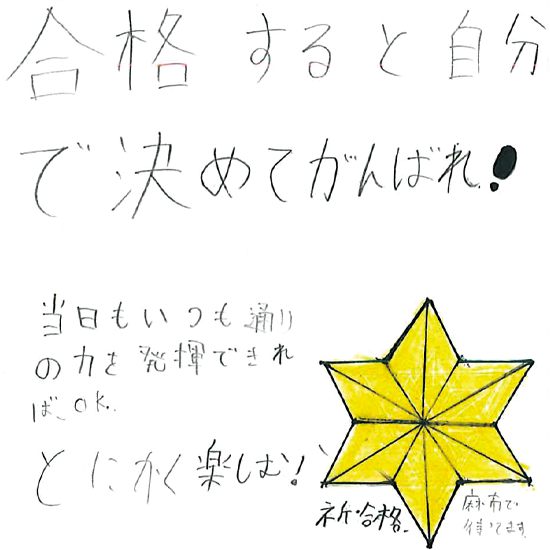 合格すると自分
で決めてがんばれ!
当日もいつも通り
の力を発揮できれ
ば、OK.
とにかく楽しむ!
祈合格.
麻布で
待ってます